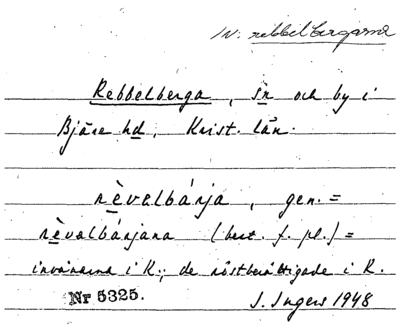 IV. rebbelbergarna
Rebbelberga, sn och by i
Bjäre hd, Krist. län.
rèvelbárja, gen. =
rèvalbárjana (best. f. pl.) =
invånarna i R.; de röstberättigade i R.
Nr 5325.
J. Ingers 1948